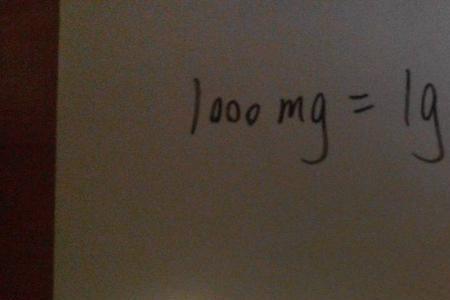 1000 mg = 1g